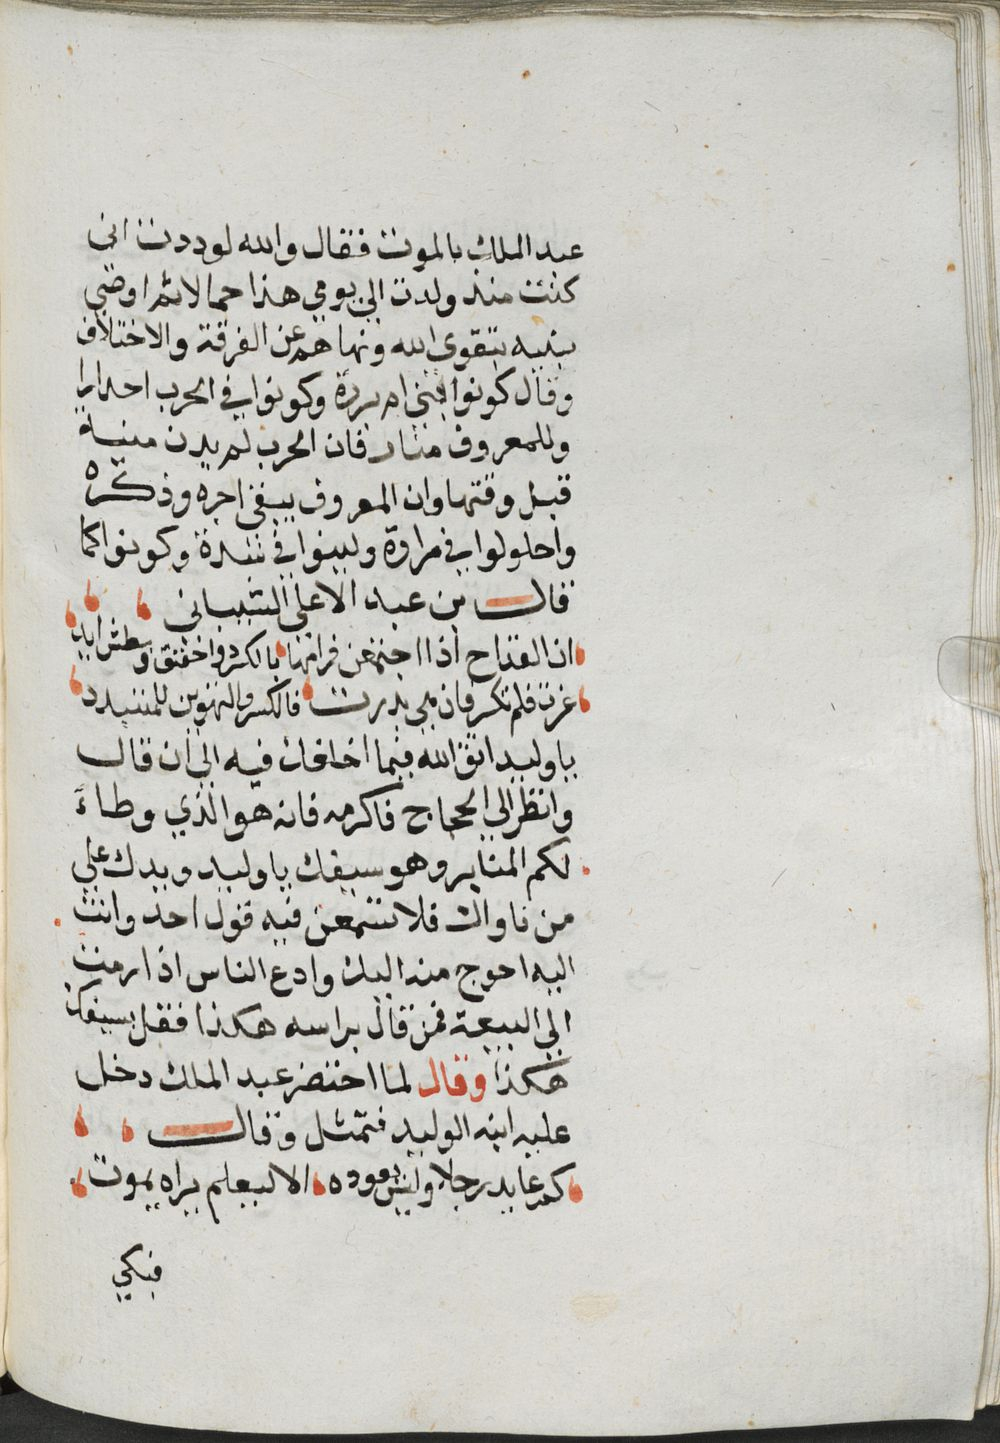 عبد الملك بالموت فقال والله لوددت انى
كنت منذ ولدت الى يومي هذا حمالا ثم اوصى
بنيه بتقوى الله ونهاهم عن الفرقة والاختلاف
وقال كونوا بنى ام بررة وكونوا في الحرب احرارا
وللمعروف منار فان الحرب لم يدن منية
قبل وقتها وان المعروف يبقى اجره وذكره
واحلولوا في مرارة ولينوا في شدة وكونوا كما
قال بن عبد الاعلى الشيبانى
ان القداح اذا اجتمعن فرامها بالكسر ذو احنق وبطش أيد
عزت فلم تكسر فان هي بددت فالكسر والتهوين للمتبدد
يا وليد اتق الله فيما اخلفك فيه الى ان قال
وانظر الى الحجاج فاكرمه فانه هو الذي وطاء
لكم المنابر وهو سيفك يا وليد ويدك على
من ناواك فلا تسمعن فيه قول احد وانت
اليه احوج منه اليك وادع الناس اذا مت
الى البيعة فمن قال براسه هكذا فقل بسيفك
هكذا وقال لما احتضر عبد الملك دخل
عليه ابنه الوليد فتمثل وقال
كم عايد رجلا وليس يعوده الا ليعلم يراه يموت
فبكى